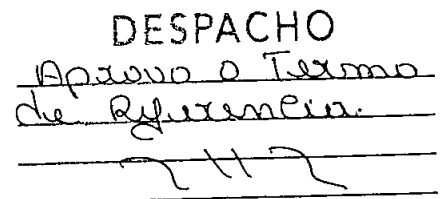 DESPACHO
Aprovo o Termo
de Referência.